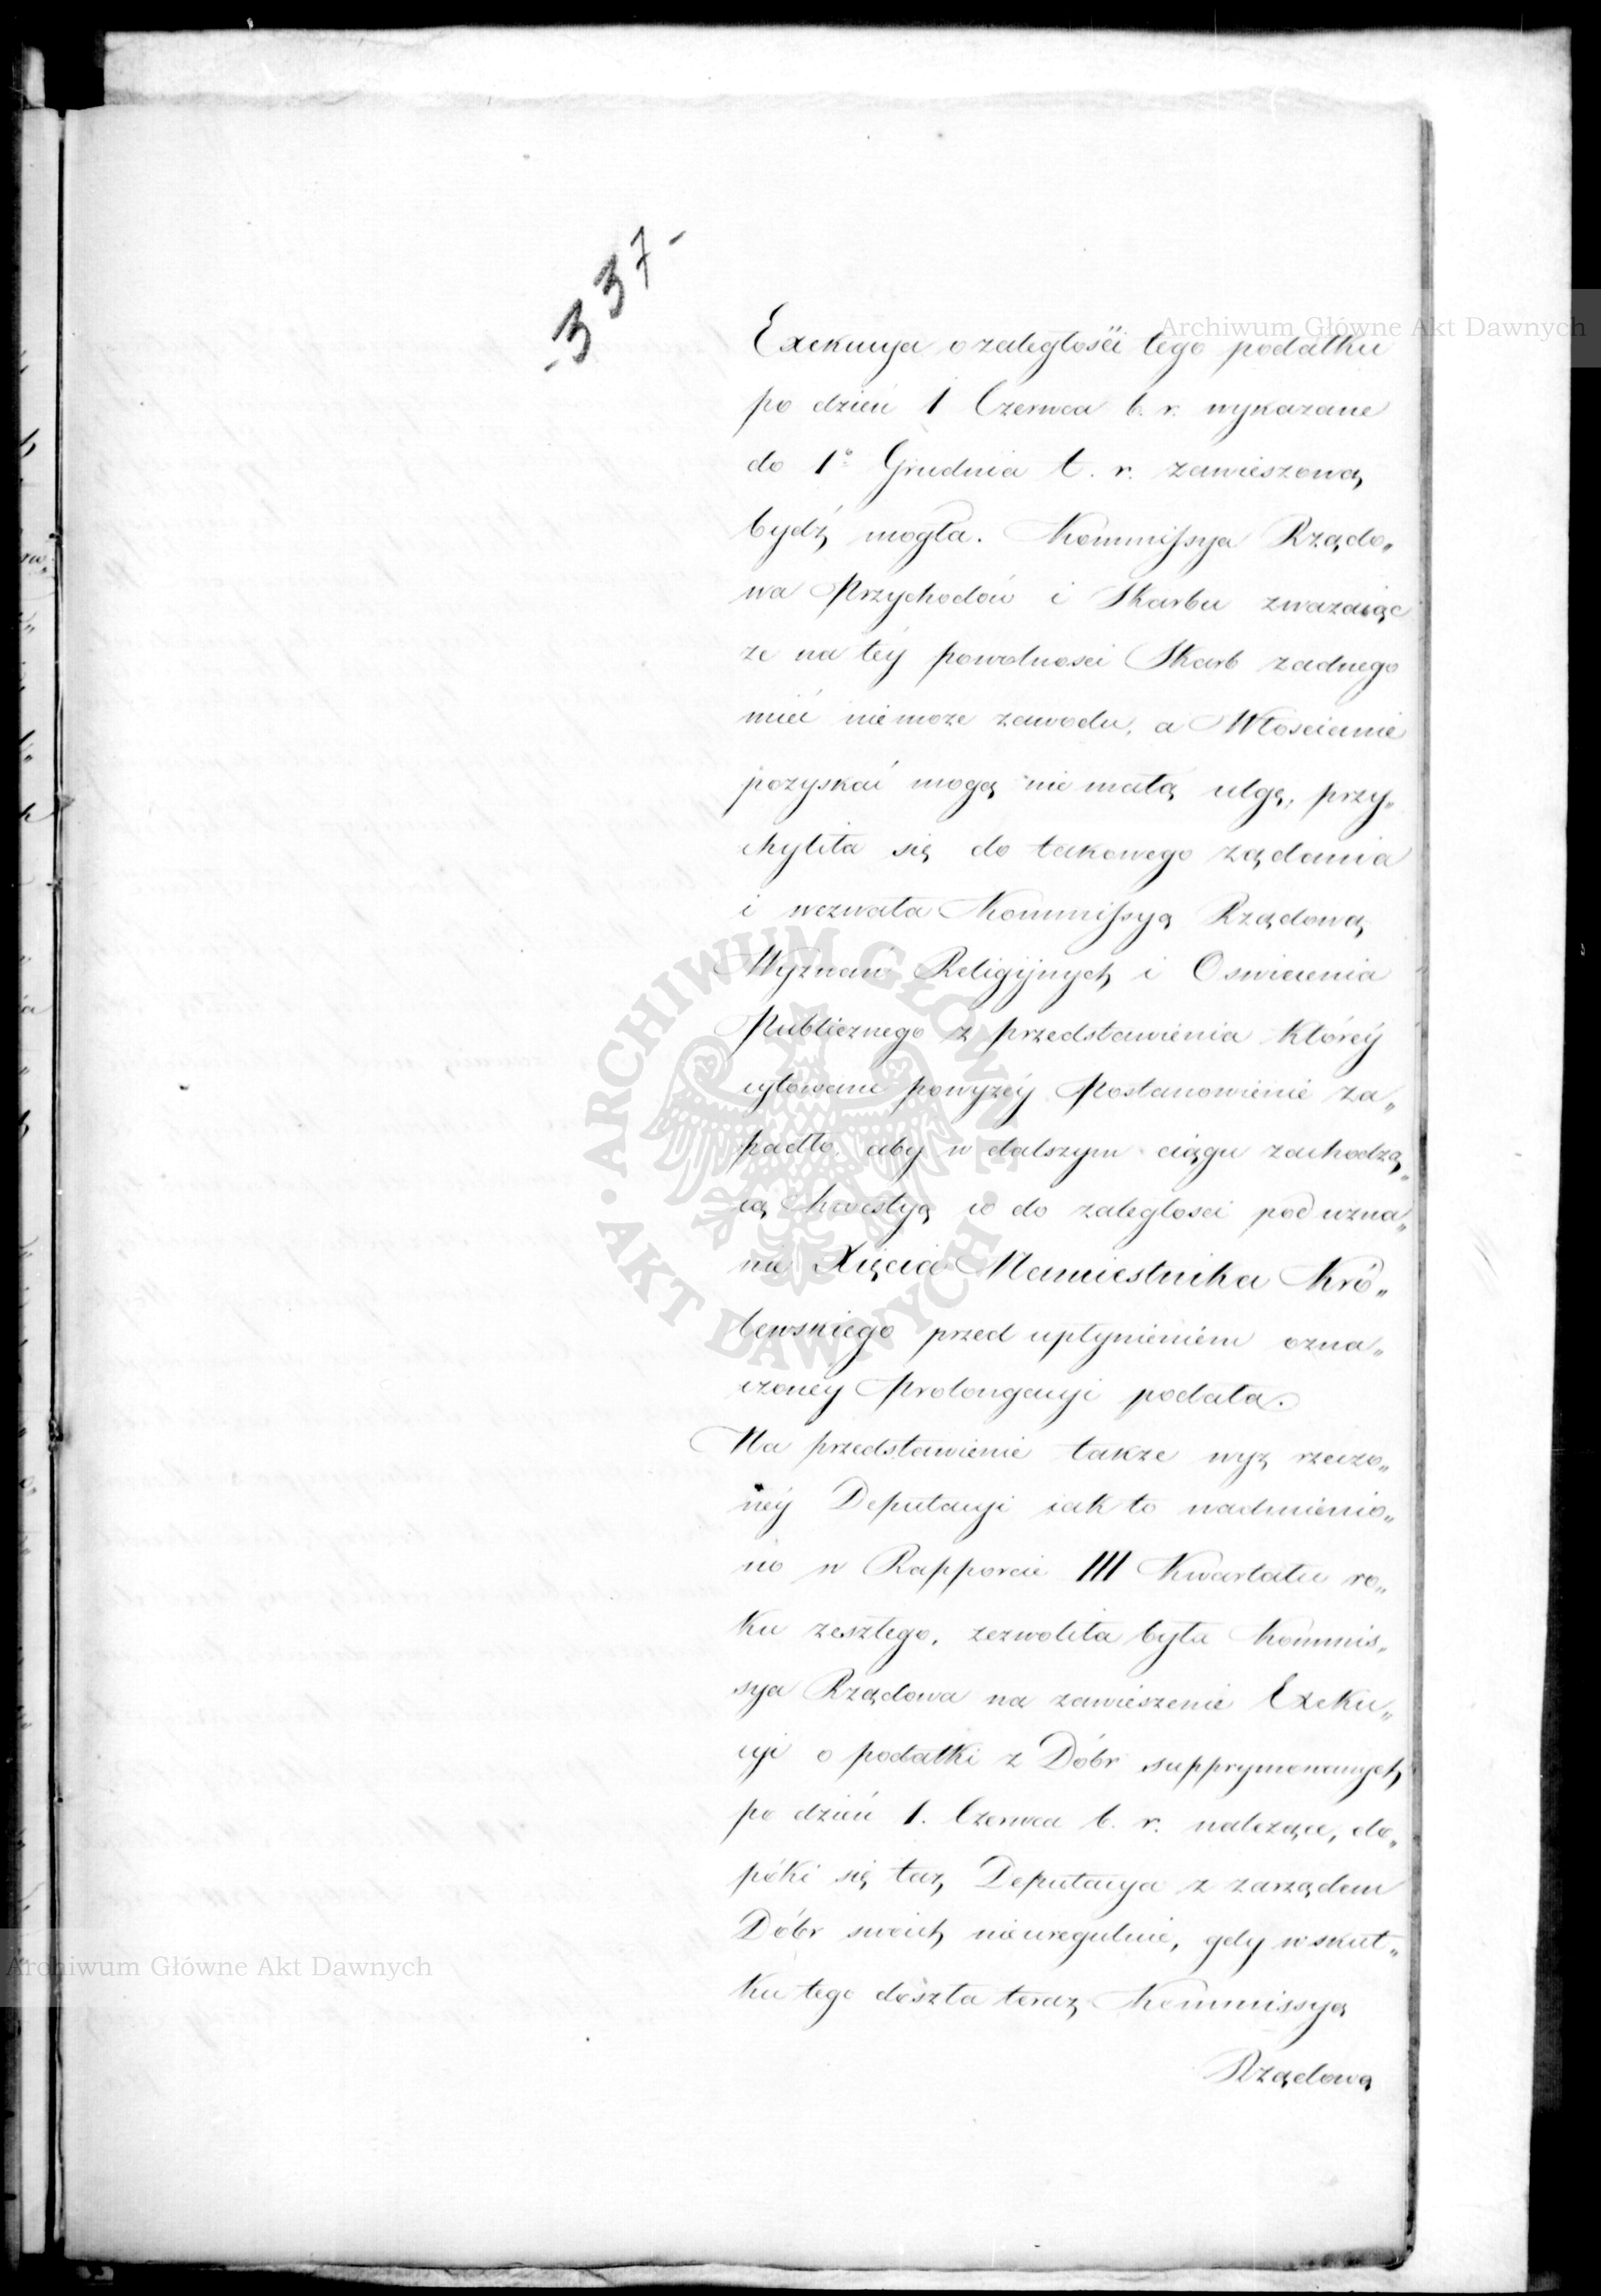 -337-
Exekucya o zaległości tego podatku
po dzień 1 Czerwca b. r. wykazane
do 1º Grudnia t. r. zawieszoną
bydź mogła. Kommissya Rządo„
wa Przychodów i Skarbu zwazaiąc
ze na téy powolnosci Skarb zadnego
mieć niemoze zawodu, a Włoscianie
pozyskać mogą nie małą ulgę, przy„
chyliła się do takowego ządania
i wezwała Kommissyą Rządową
Wyznań Religijnych i Oswiecenia
Publicznego z przedstawienia któréy
cytowane powyzéy Postanowienie za„
padło, aby w dalszym ciągu zachodzą„
cą kwestyą co do zaległosci pod uzna„
nie Xięcia Namiestnika Kró„
lewskiego przed upłynieniem ozna„
czoney Prolongacyi podała.
Na przedstawienie takze wyz rzeczo„
néy Deputacyi iak to nadmienio„
no w Rapporcie III Kwartału ro„
ku zeszłego, zezwoliła była Kommis„
sya Rządowa na zawieszenie Exeku„
cyi o podatki z Dóbr supprymowanych
po dzień 1. Czerwca b. r. nalezące, do„
póki się taz Deputacya z zarządem
Dóbr swoich nieureguluie, gdy w skut„
ku tego doszła teraz Kommissyą
Rządową
Archiwum Główne Akt Dawnych
ARCHIWUM GŁÓWNE · AKT DAWNYCH ·
Archiwum Główne Akt Dawnych